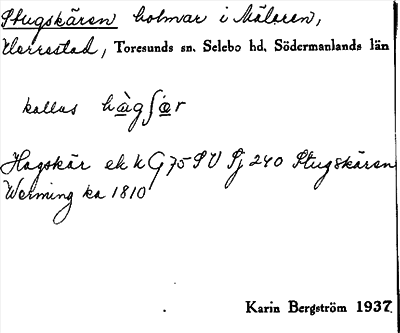 Stugskären holmar i Mälaren,
Herrestad, Toresunds sn. Selebo hd. Södermanlands län
kallas hàgʃær
Hagskär ek k G 75 SV Sj 240 Stugskären
Werming ka 1810
Karin Bergström 1937